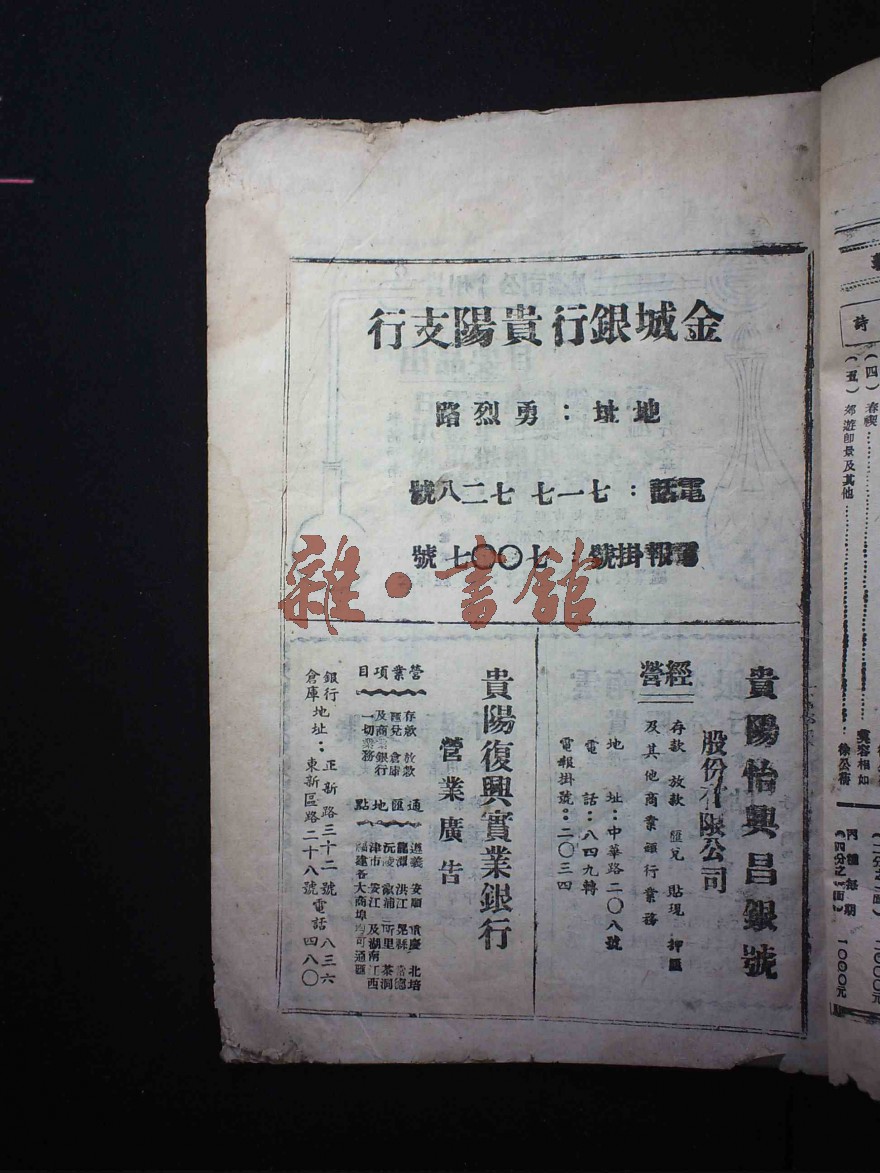 金城銀行貴陽支行
地址：勇烈路
電話：七一七 七二八號
電報掛號 七〇〇七號
雜·書館
貴陽怡興昌銀號
股份有限公司
經營
存款 放款 匯兌 貼現 押匯
及其他商業銀行業務
地址：中華路二〇八號
電話：八四九轉
電報掛號：二〇三四
貴陽復興實業銀行
營業廣告
營業項目
存款 放款
匯兌 倉庫
及商業銀行
一切業務
通匯地點
遵義 安順 重慶 北培
龍潭 洪江 晃縣 常德
沅陵 溆浦 所里 茶洞
津市 安江 及湖南江西
福建各大商埠均可通匯
銀行地址：正新路三十二號 電話 八三六
倉庫地址：東新區路二十八號 電話 四八〇
詩
（四）春禊
（五）郊遊即景及其他
徐公蓓
丙種每期
一〇〇〇元